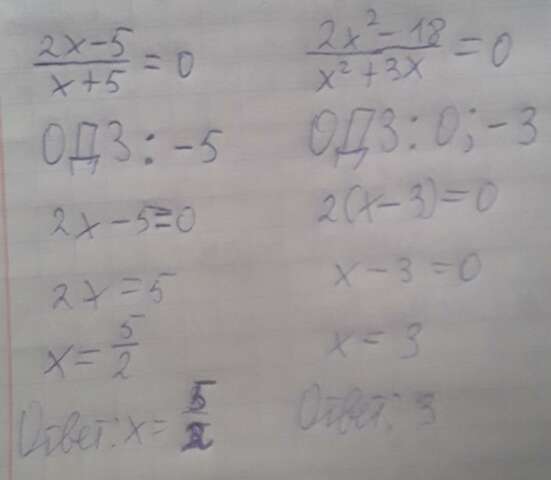 (2x-5)/(x+5) = 0
ОДЗ: -5
2x-5=0
2x=5
x=5/2
Ответ: x=5/2
(2x²-18)/(x²+3x) = 0
ОДЗ: 0; -3
2(x-3)=0
x-3=0
x=3
Ответ: 3